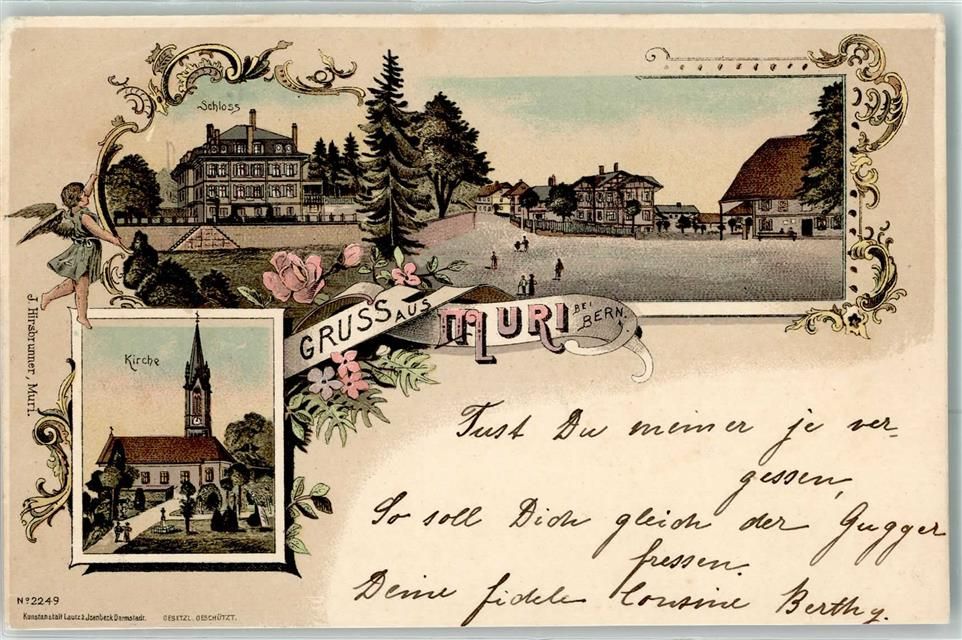 Schloss
Kirche
GRUSS AUS MURI BEI BERN.
J. Hirsbrunner, Muri.
Tust Du meiner je ver-
gessen,
So soll Dich gleich der Gugger
fressen.
Deine fidele Cousine Berthy.
Nº 2249
Kunstanstalt Lautz & Jsenbeck Darmstadt. GESETZL. GESCHÜTZT.